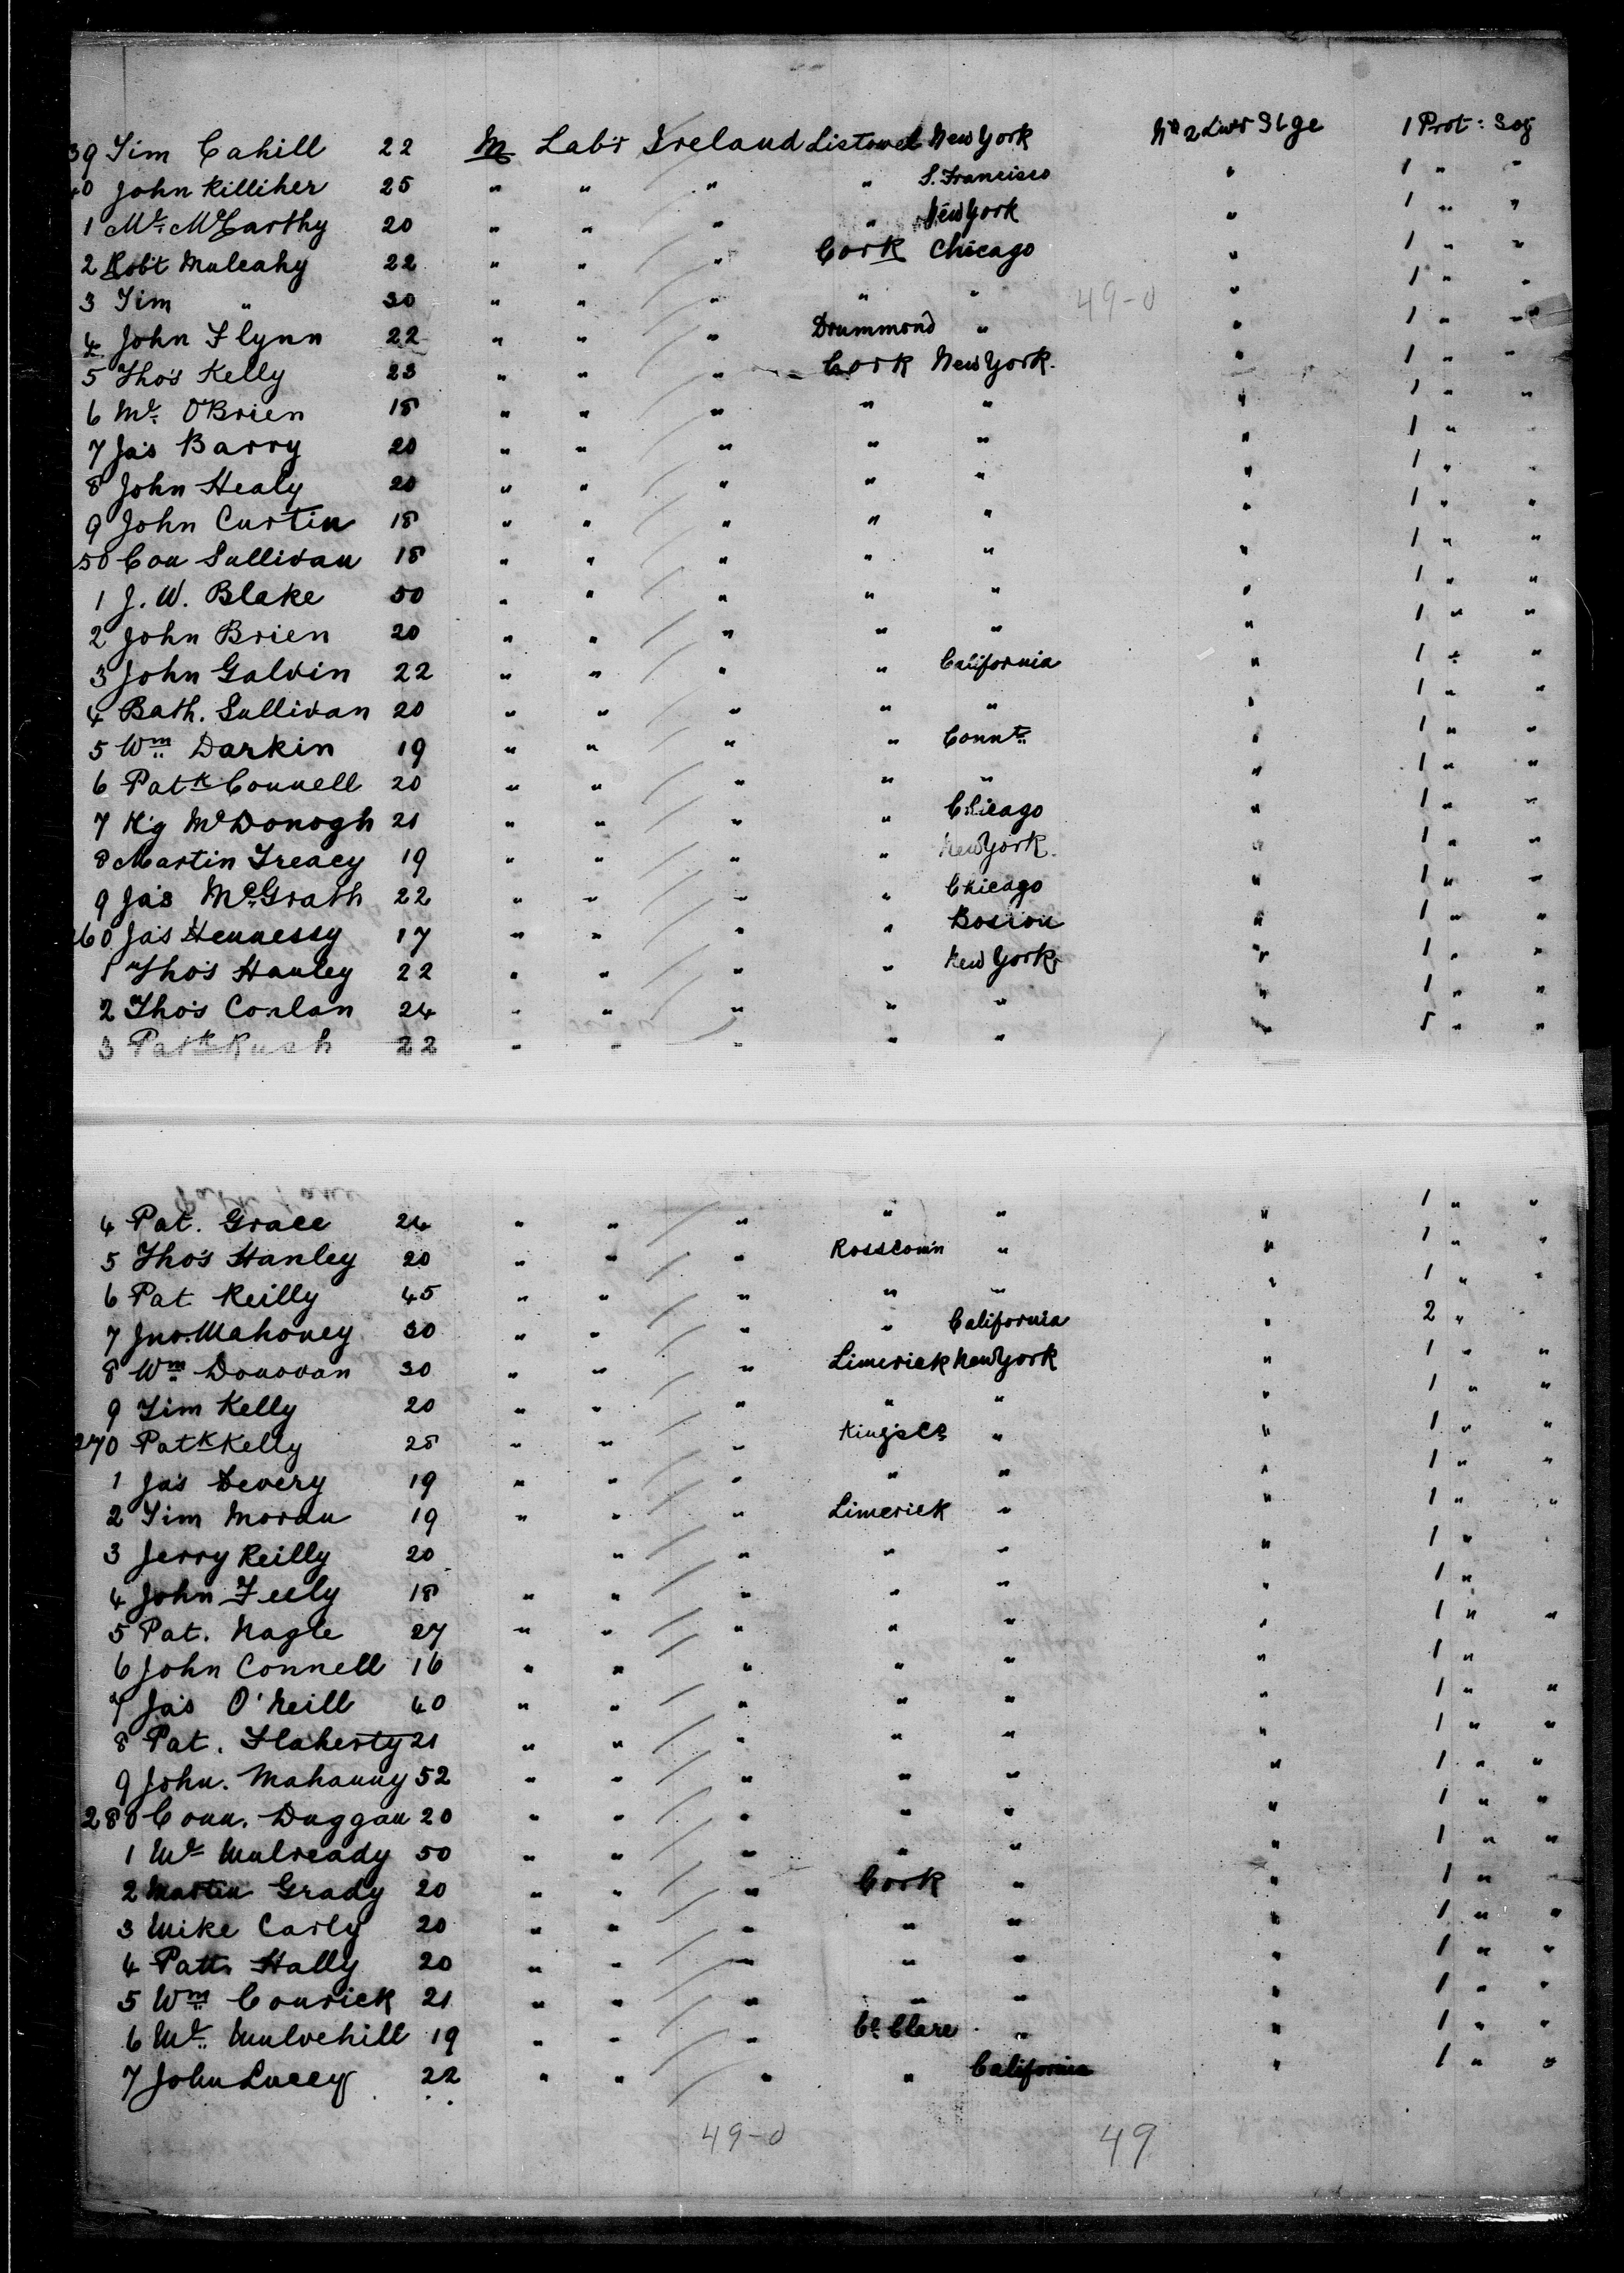 39 Tim Cahill 22 M Lab'r Ireland Listowel New York No 2 Lwr Stge 1 Prot: Soj
40 John Killiher 25 " " " " S. Francisco " 1 " "
1 Ml. McCarthy 20 " " " " New York " 1 " "
2 Rob't Mulcahy 22 " " " Cork Chicago " 1 " "
3 Tim " 30 " " " " " 49-0 " 1 " "
4 John Flynn 22 " " " Drummond " " 1 " "
5 Tho's Kelly 23 " " " Cork New York. " 1 " "
6 Ml. O'Brien 18 " " " " " " 1 " "
7 Ja's Barry 20 " " " " " " 1 "
8 John Healy 20 " " " " " " 1 " "
9 John Curtin 18 " " " " " " 1 " "
50 Con Sullivan 18 " " " " " " 1 " "
1 J. W. Blake 50 " " " " " " 1 " "
2 John Brien 20 " " " " " " 1 " "
3 John Galvin 22 " " " " California " 1 " "
4 Bath. Sullivan 20 " " " " " " 1 " "
5 Wm Darkin 19 " " " " Connt. " 1 " "
6 Patk Connell 20 " " " " " " 1 " "
7 H'g McDonogh 21 " " " " Chicago " 1 " "
8 Martin Treacy 19 " " " " New York. " 1 " "
9 Ja's McGrath 22 " " " " Chicago " 1 " "
260 Ja's Hennessy 17 " " " " Boston " 1 " "
1 Tho's Hanley 22 " " " " New York " 1 " "
2 Tho's Conlan 24 " " " " " " 1 " "
3 Patk Rush 22 " " " " " " 5 " "
4 Pat. Grace 24 " " " " " " 1 " "
5 Tho's Hanley 20 " " " Rosscom'n " " 1 " "
6 Pat Reilly 45 " " " " " " 1 " "
7 Jno. Mahoney 30 " " " " California " 2 "
8 Wm Donovan 30 " " " Limerick New York " 1 " "
9 Tim Kelly 20 " " " " " " 1 " "
270 Patk Kelly 28 " " " King's Co " " 1 " "
1 Ja's Devery 19 " " " " " " 1 " "
2 Tim Moran 19 " " " Limerick " " 1 " "
3 Jerry Reilly 20 " " " " " 1 "
4 John Feely 18 " " " " " " 1 "
5 Pat. Nagle 27 " " " " " " 1 " "
6 John Connell 16 " " " " " " 1 "
7 Ja's O'Neill 40 " " " " " " 1 " "
8 Pat. Flaherty 21 " " " " " " 1 " "
9 John. Mahanny 52 " " " " " " 1 " "
280 Conn. Duggan 20 " " " " " " 1 " "
1 Ml Mulready 50 " " " " " " 1 " "
2 Martin Grady 20 " " " Cork " " 1 " "
3 Mike Carly 20 " " " " " " 1 " "
4 Patk Hally 20 " " " " " " 1 " "
5 Wm Conrick 21 " " " " " " 1 " "
6 Ml. Mulvehill 19 " " " Co. Clare " " 1 " "
7 John Lucey 22 " " " " California " 1 " "
49-0 49